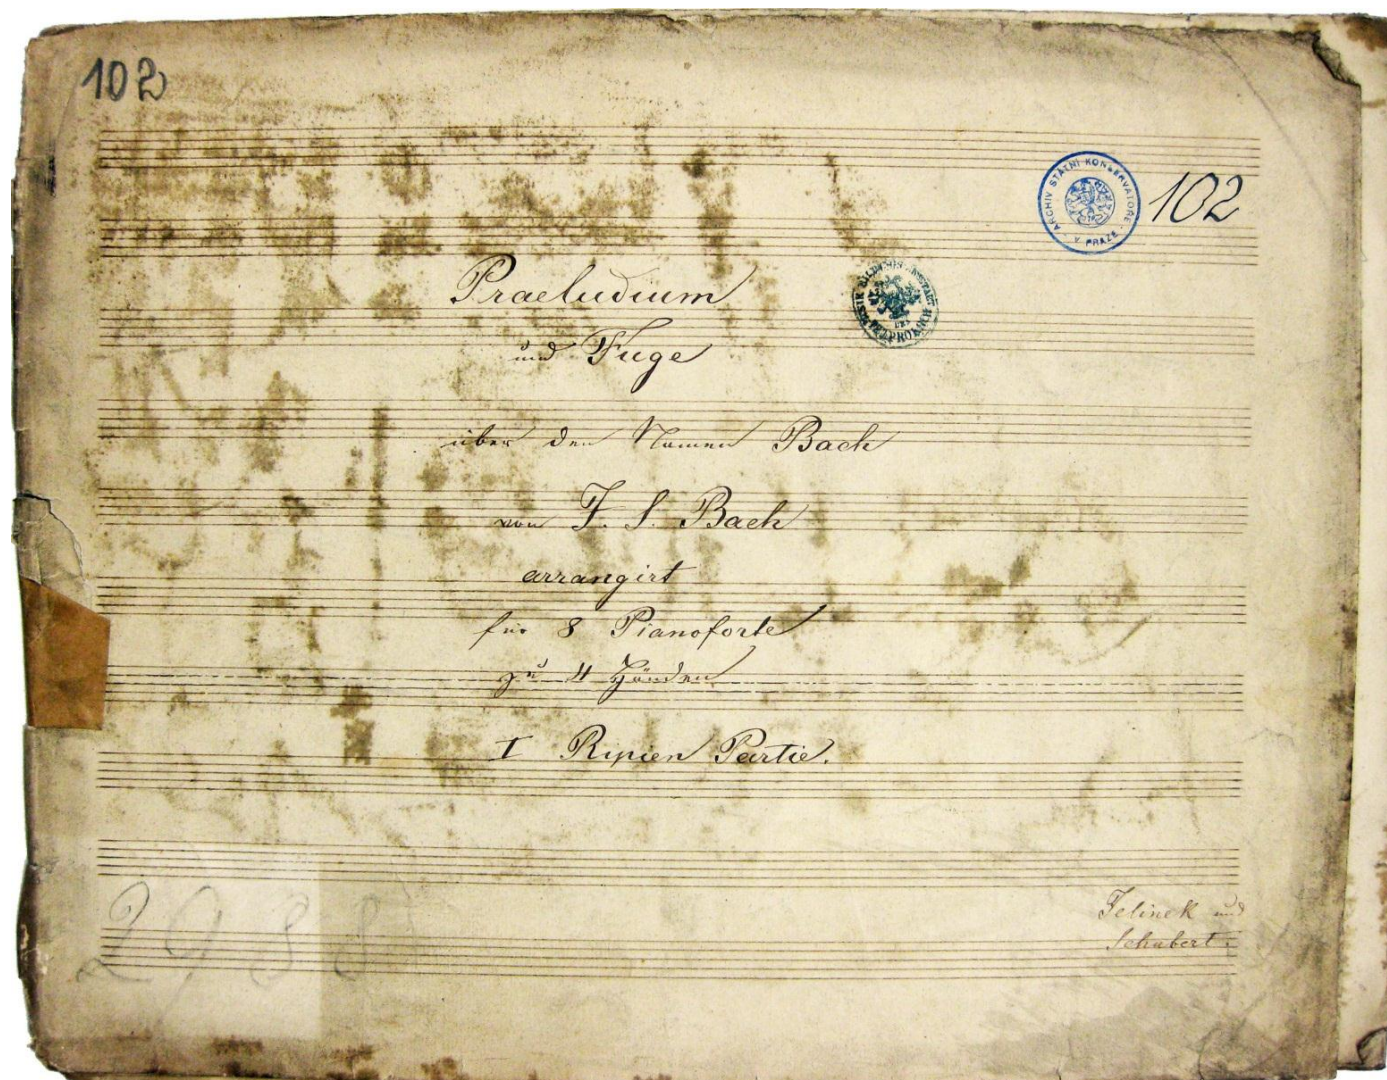 102
ARCHIV STÁTNÍ KONSERVATOŘE V PRAZE
102
Praeludium
und Fuge
über den Namen Bach
von J. S. Bach
arrangirt
für 8 Pianoforte
zu 4 Händen
I Ripien Partie.
Jelinek und
Schubert.
2988